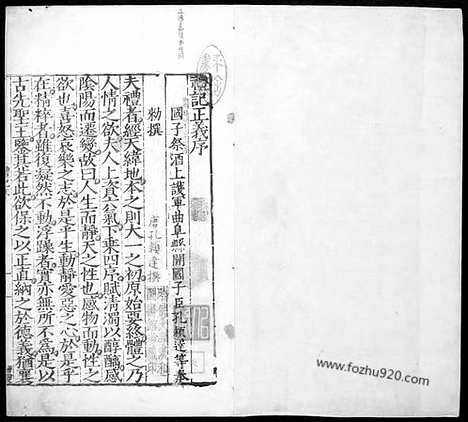 禮記正義序
國子祭酒上護軍曲阜縣開國子臣孔穎達等奉
勑撰
唐孔穎達撰
夫禮者經天緯地本之則大一之初原始要終體之乃
人情之欲夫人上資六氣下乗四序賦清濁以醇醨感
陰陽而遷變故曰人生而靜天之性也感物而動性之
欲也喜怒哀樂之志於是乎生動靜愛惡之心於是乎
在精粹者雖復凝然不動浮躁者實亦無所不為是以
古先聖王鑒其若此欲保之以正直納之於德義猶襄
www.fozhu920.com